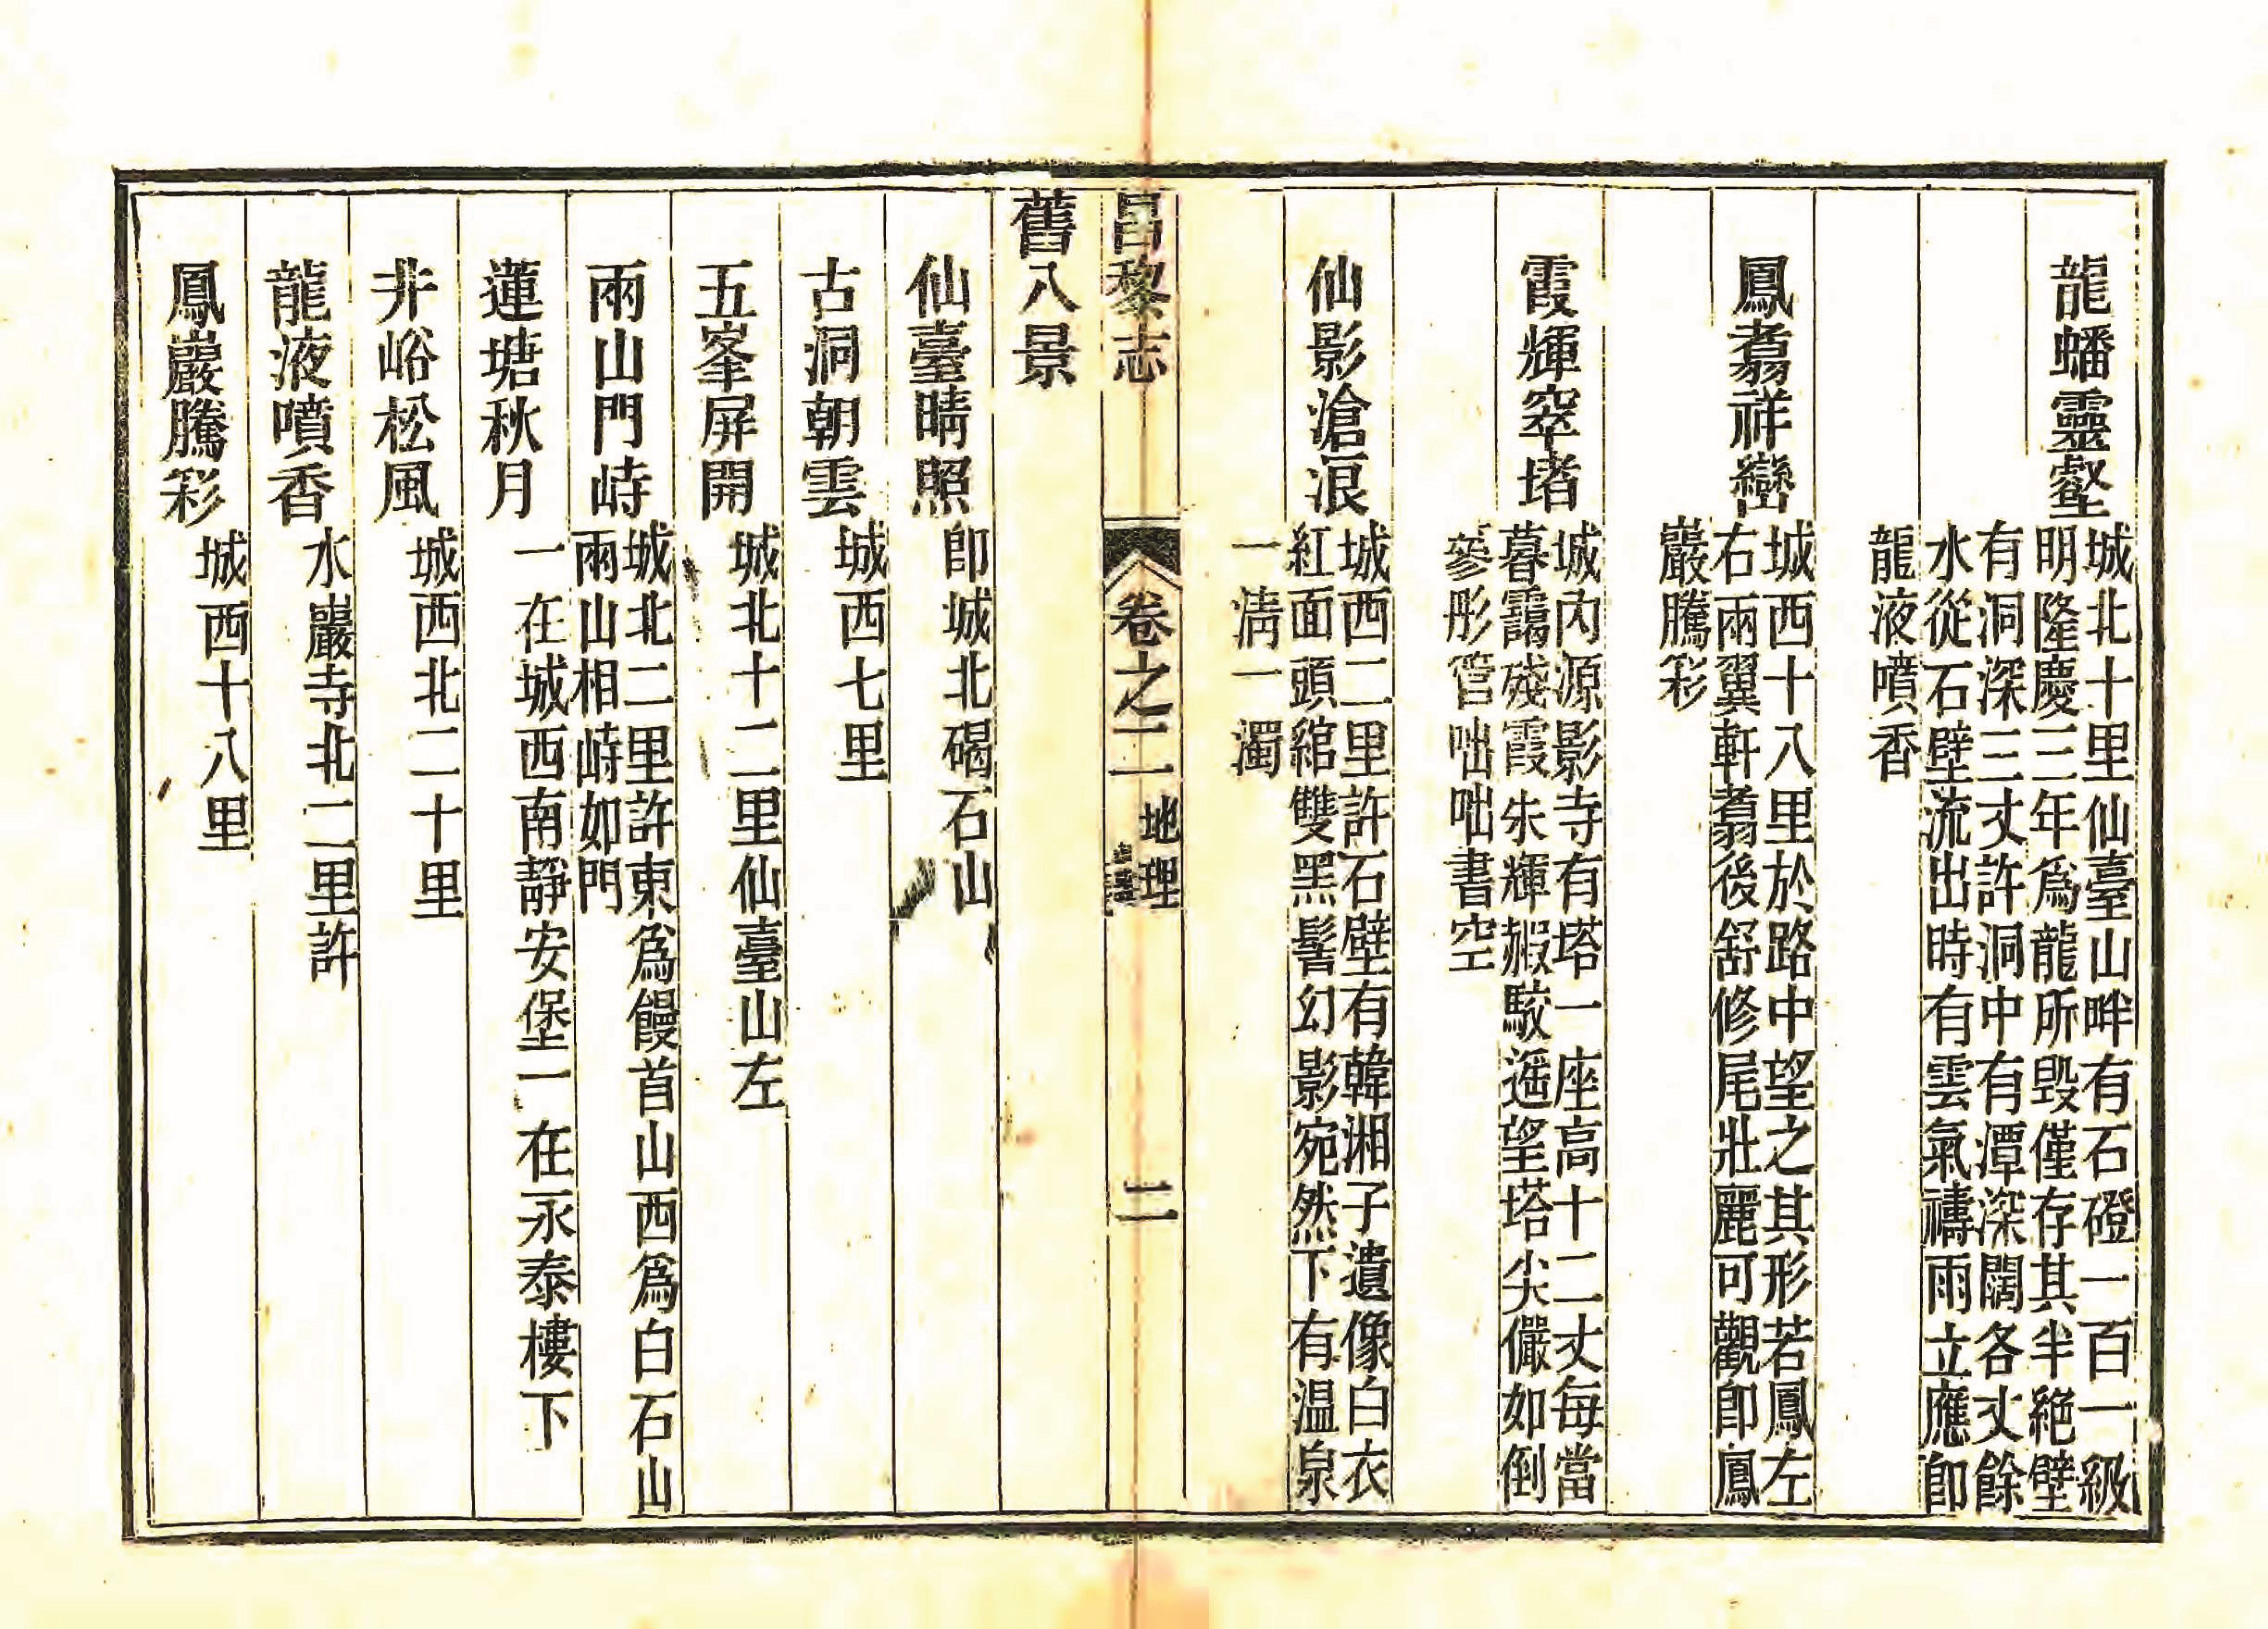 龍蟠靈壑
城北十里仙臺山畔有石磴一百一級
明隆慶三年爲龍所毀僅存其半絶壁
有洞深三丈許洞中有潭深闊各丈餘
水從石壁流出時有雲氣禱雨立應卽
龍液噴香
鳳翥祥巒
城西十八里於路中望之其形若鳳左
右兩翼軒翥後舒修尾壯麗可觀卽鳳
巖騰彩
霞輝窣堵
城內源影寺有塔一座高十二丈每當
暮靄殘霞朱輝赮駮遥望塔尖儼如倒
蔘彤管咄咄書空
仙影滄浪
城西二里許石壁有韓湘子遺像白衣
紅面頭綰雙黑髻幻影宛然下有温泉
一淸一濁
昌黎志 卷之二 地理 二
舊八景
仙臺晴照 卽城北碣石山
古洞朝雲 城西七里
五峯屏開 城北十二里仙臺山左
兩山門峙
城北二里許東爲饅首山西爲白石山
兩山相峙如門
蓮塘秋月 一在城西南靜安堡一在永泰樓下
井峪松風 城西北二十里
龍液噴香 水巖寺北二里許
鳳巖騰彩 城西十八里